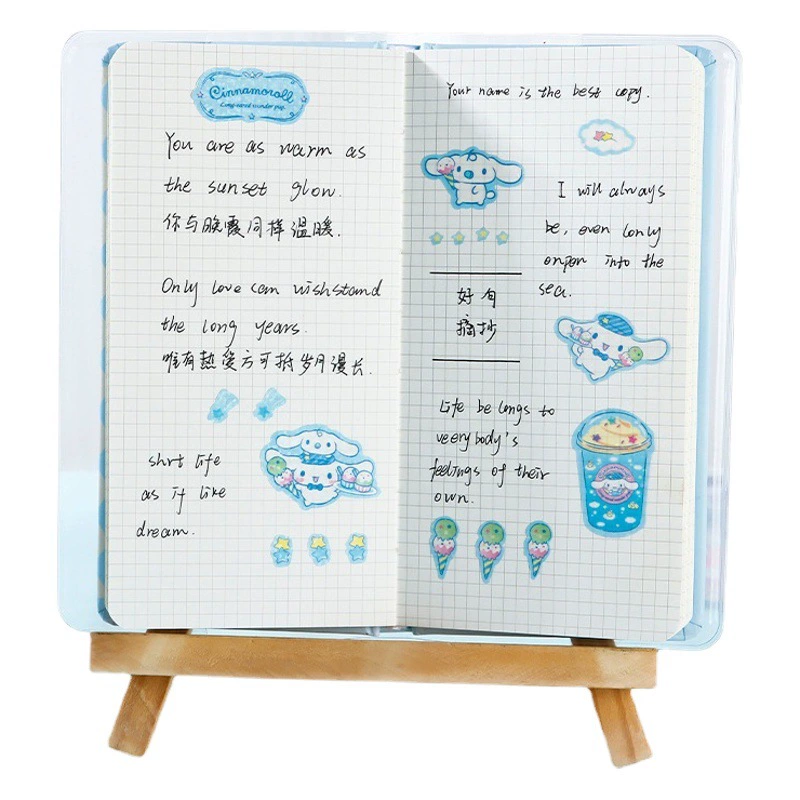 Cinnamoroll
Long-eared wonder pup.
You are as warm as
the sunset glow.
你与晚霞同样温暖.
Only love can wishstand
the long years.
唯有热爱方可抵岁月漫长.
shrt life
as if like
dream.
Your name is the best copy.
I will always
be, even lonly
onpon into the
sea.
好句
摘抄
Life be longs to
veerybody's
feelings of their
own.